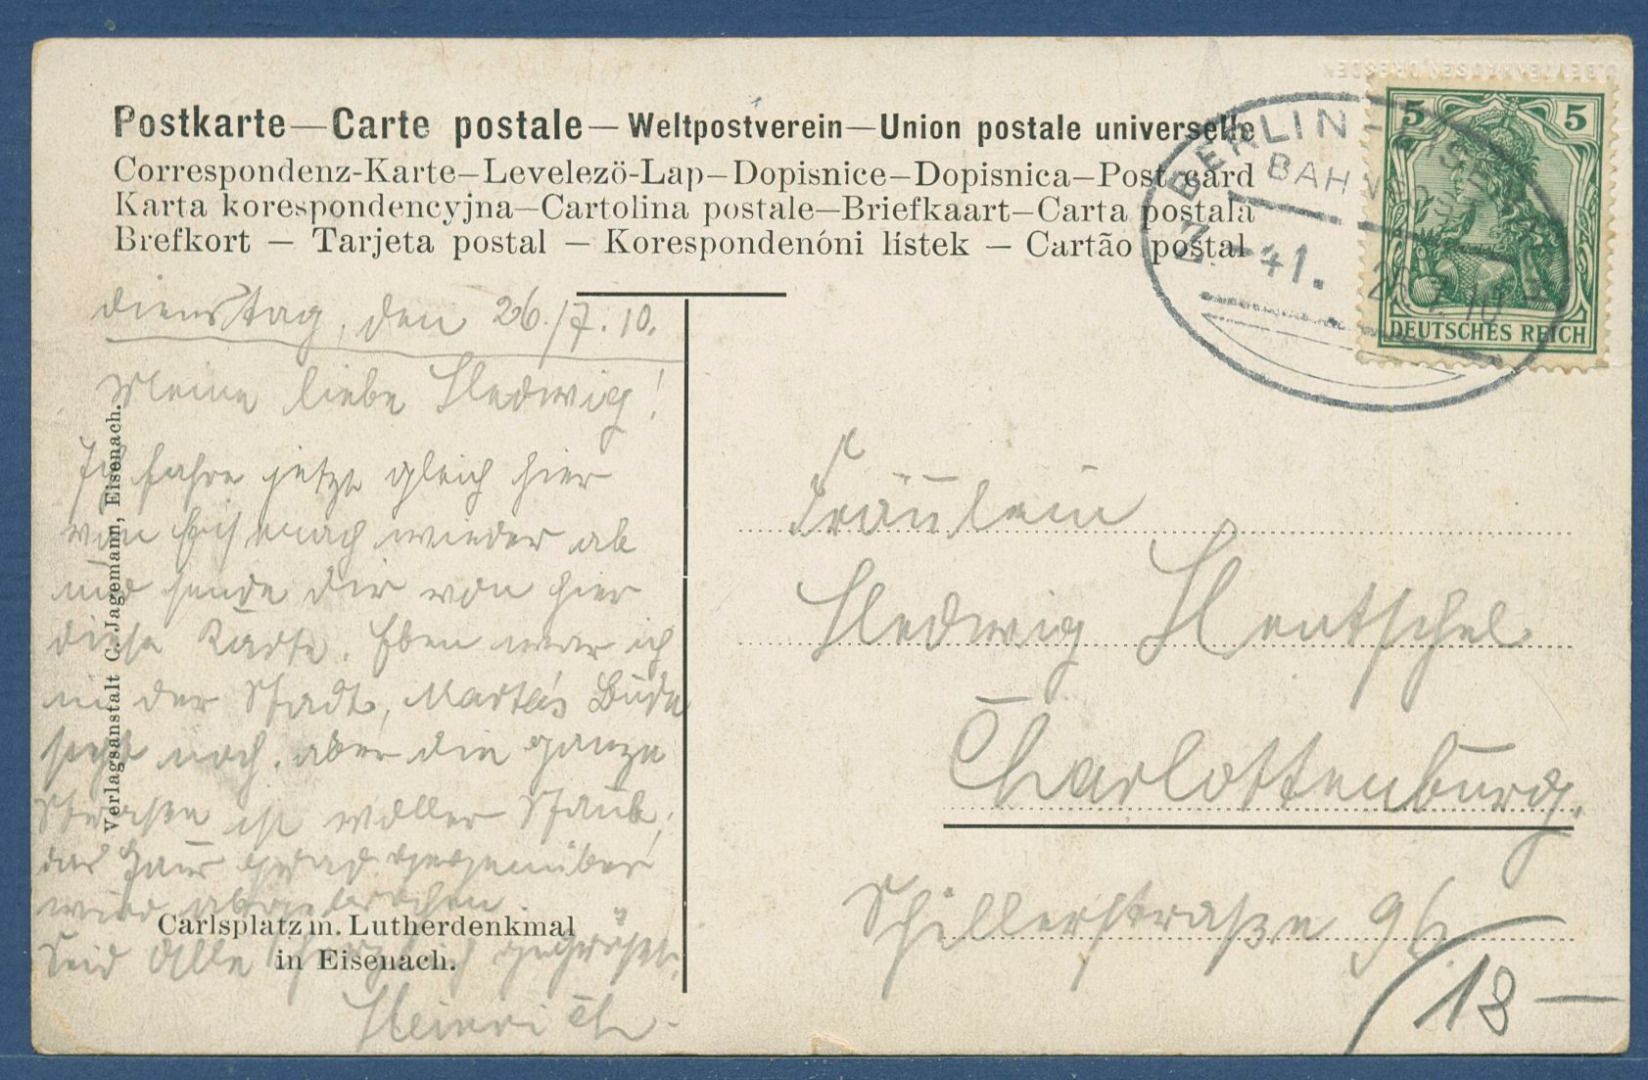 Postkarte—Carte postale—Weltpostverein—Union postale universelle
Correspondenz-Karte—Levelező-Lap—Dopisnice—Dopisnica—Post card
Karta korespondencyjna—Cartolina postale—Briefkaart—Carta postala
Brefkort — Tarjeta postal — Korespondenóni lístek — Cartão postal
BERLIN-
BAHNPOST
41.
5 5
DEUTSCHES REICH
dienstag, den 26./7.10.
Meine liebe Hedwig!
Ich fahre jetzt gleich hier
von Eisenach wieder ab
und sende dir von hier
diese Karte. Eben war ich
in der Stadt, Martas Bude
steht noch, aber die ganze
Strasse ist voller Staub,
das Haus grad gegenüber
wird abgebrochen.
Seid Alle herzlich gegrüßt.
Heinrich.
Verlagsanstalt C. Jagemann, Eisenach.
Carlsplatz m. Lutherdenkmal
in Eisenach.
Fräulein
Hedwig Hentschel
Charlottenburg.
Schillerstraße 96
18 —